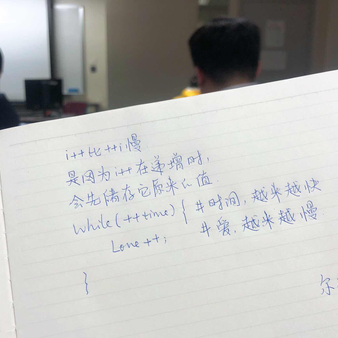 i++比++i慢
是因为i++在递增时,
会先储存它原来的值
while(++time){ #时间,越来越快
Love++; #爱,越来越慢
}